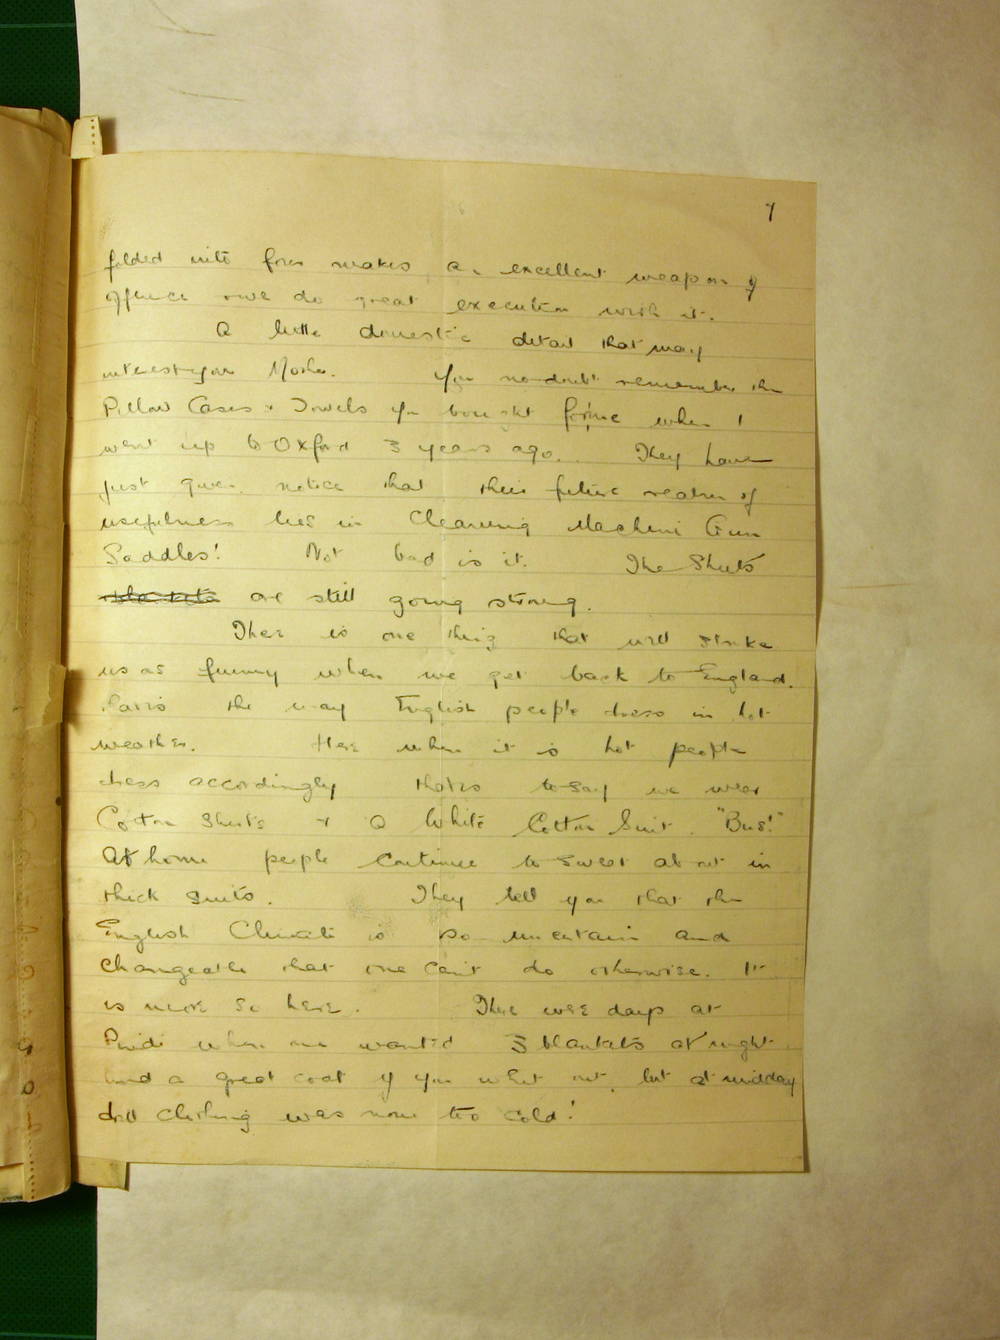 7
folded into four makes an excellent weapon of
offence & we do great execution with it.
A little domestic detail that may
interest you Mother. You no doubt remember the
Pillow Cases & Towels you bought for me when I
went up to Oxford 3 years ago. They have
just given notice that their future realm of
usefulness lies in Cleaning Machine Gun
Saddles! Not bad is it. The Sheets
are still going strong.
There is one thing that will strike
us as funny when we get back to England.
that is the way English people dress in hot
weather. Here when it is hot people
dress accordingly that is to say we wear
Cotton Shirts & a White Cotton Suit. "Bus!"
At home people continue to sweat about in
thick suits. They tell you that the
English Climate is so uncertain and
changeable that one can't do otherwise. It
is more so here. There were days at
Pindi when one wanted 3 blankets at night
and a great coat if you went out, but at midday
drill clothing was none too cold!